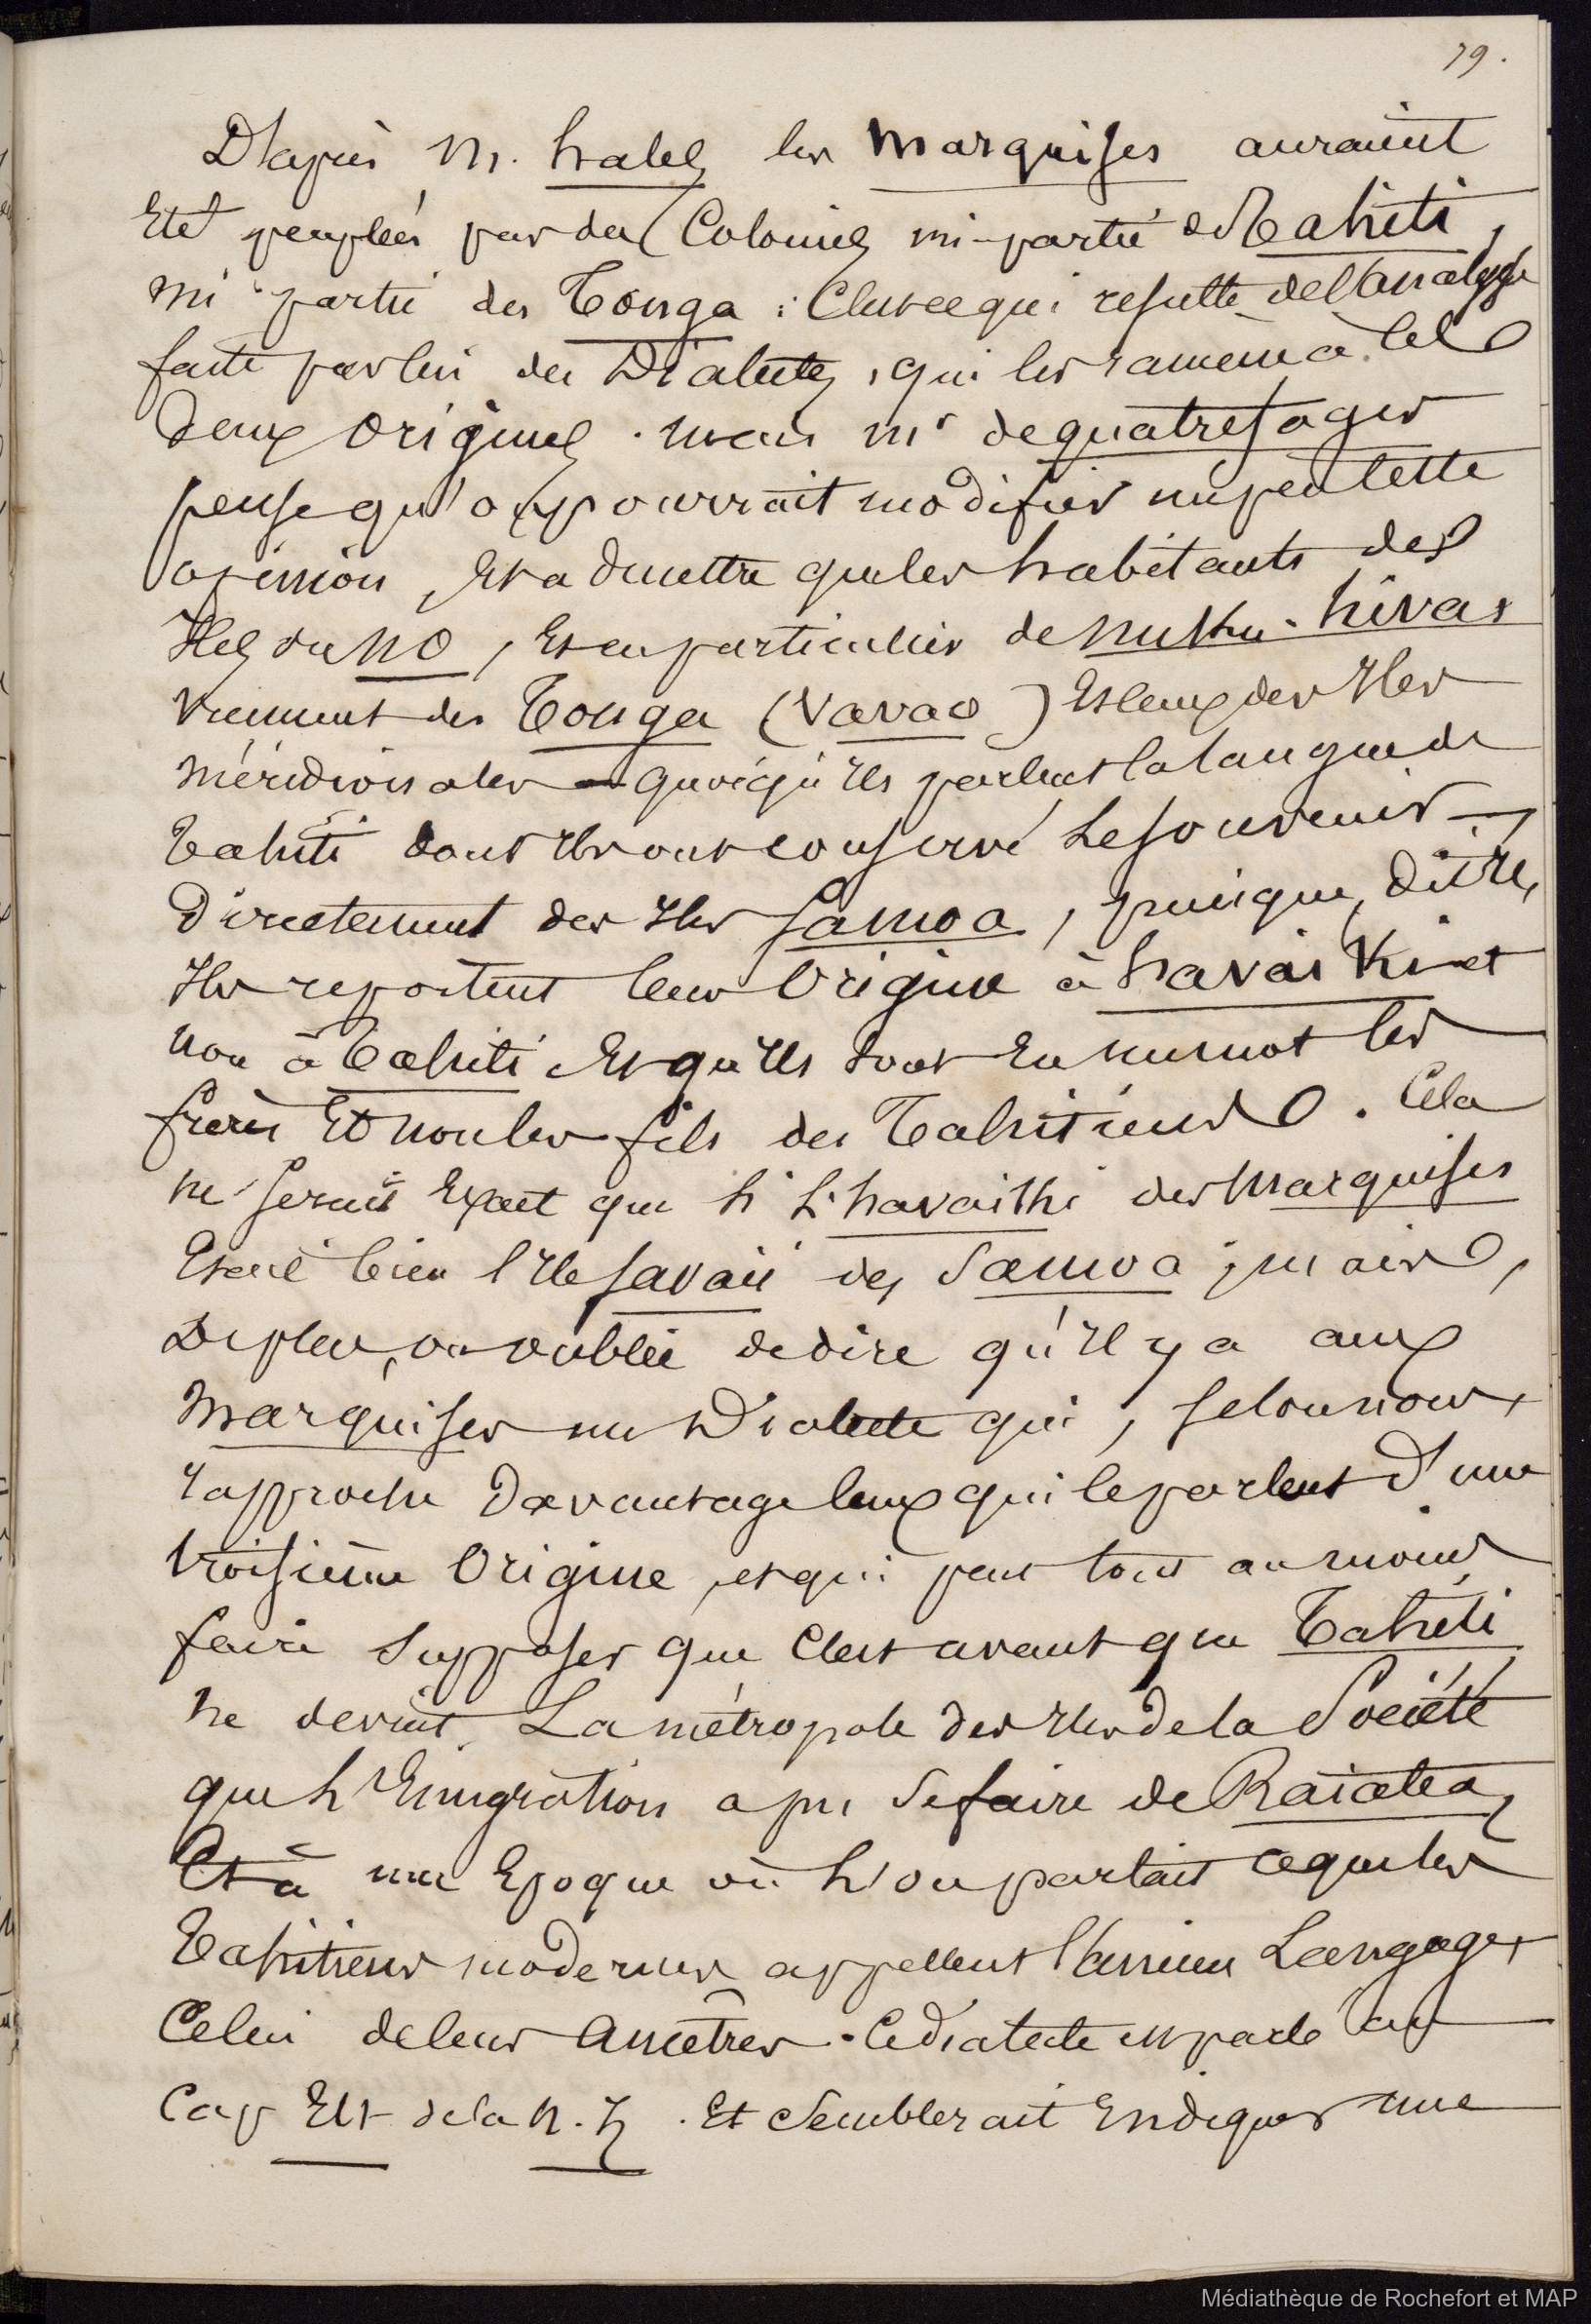 79.
D'après M. hale, les marquises auraient
Eté peuplées par des Colonies mi-partie de Tahiti,
mi-partie des Tonga : C'est ce qui resulte de l'analyse
faite par lui des Dialectes, qui les ramène à ces
deux Origines. mais Mr de quatrefages
pense qu'on pourrait modifier un peu cette
opinion, Et admettre que les habitants des
Iles du NO, Et en particulier de nuku-hivas
viennent des Tonga (Vavao) Et ceux des Iles
Méridionales - quoiqu'Ils parlent la langue de
Tahiti dont Ils ont conservé Le souvenir -,
Directement des Iles Samoa, puisque, dit-Il,
Ils reportent leur Origine à havaiki et
non à Tahiti Et qu'Ils sont En un mot les
frères Et non les fils des Tahitiens. Cela
ne serait Exact que si L'havaiki des Marquises
Etait bien l'Ile Savaii des Samoa ; mais,
De plus, on oublie de dire qu'Il y a aux
Marquises un Dialecte qui, selon nous,
rapproche Davantage ceux qui le parlent d'une
troisième Origine, et qui peut tout au moins
faire Supposer que C'est avant que Tahiti
ne devint La métropole des Iles de la Société
que L'Emigration a pu Se faire de Raiatea,
Et à une Epoque où L'on parlait ce que les
Tahitiens modernes appellent l'ancien Langage,
Celui de leurs Ancêtres. Ce dialecte est parlé au
Cap Est de la N. Z. Et Semblerait Indiquer une
Médiathèque de Rochefort et MAP